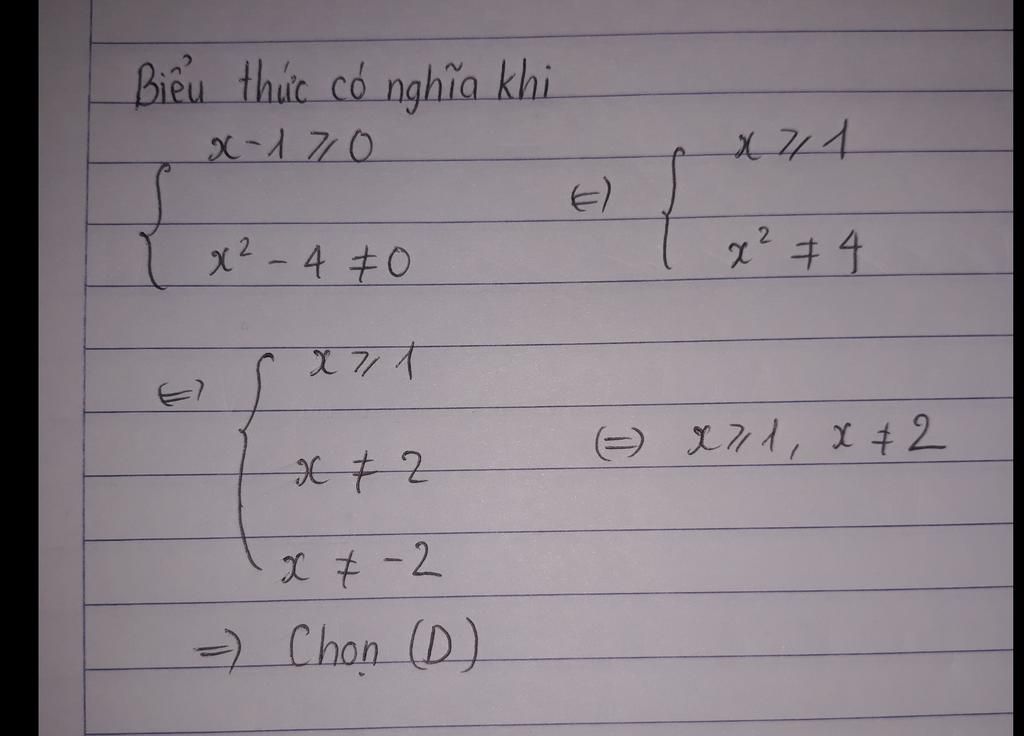 Biểu thức có nghĩa khi
{ x - 1 ⩾ 0
x² - 4 ≠ 0
⇔ { x ⩾ 1
x² ≠ 4
⇔ { x ⩾ 1
x ≠ 2
x ≠ -2
⇔ x ⩾ 1, x ≠ 2
⇒ Chọn (D)